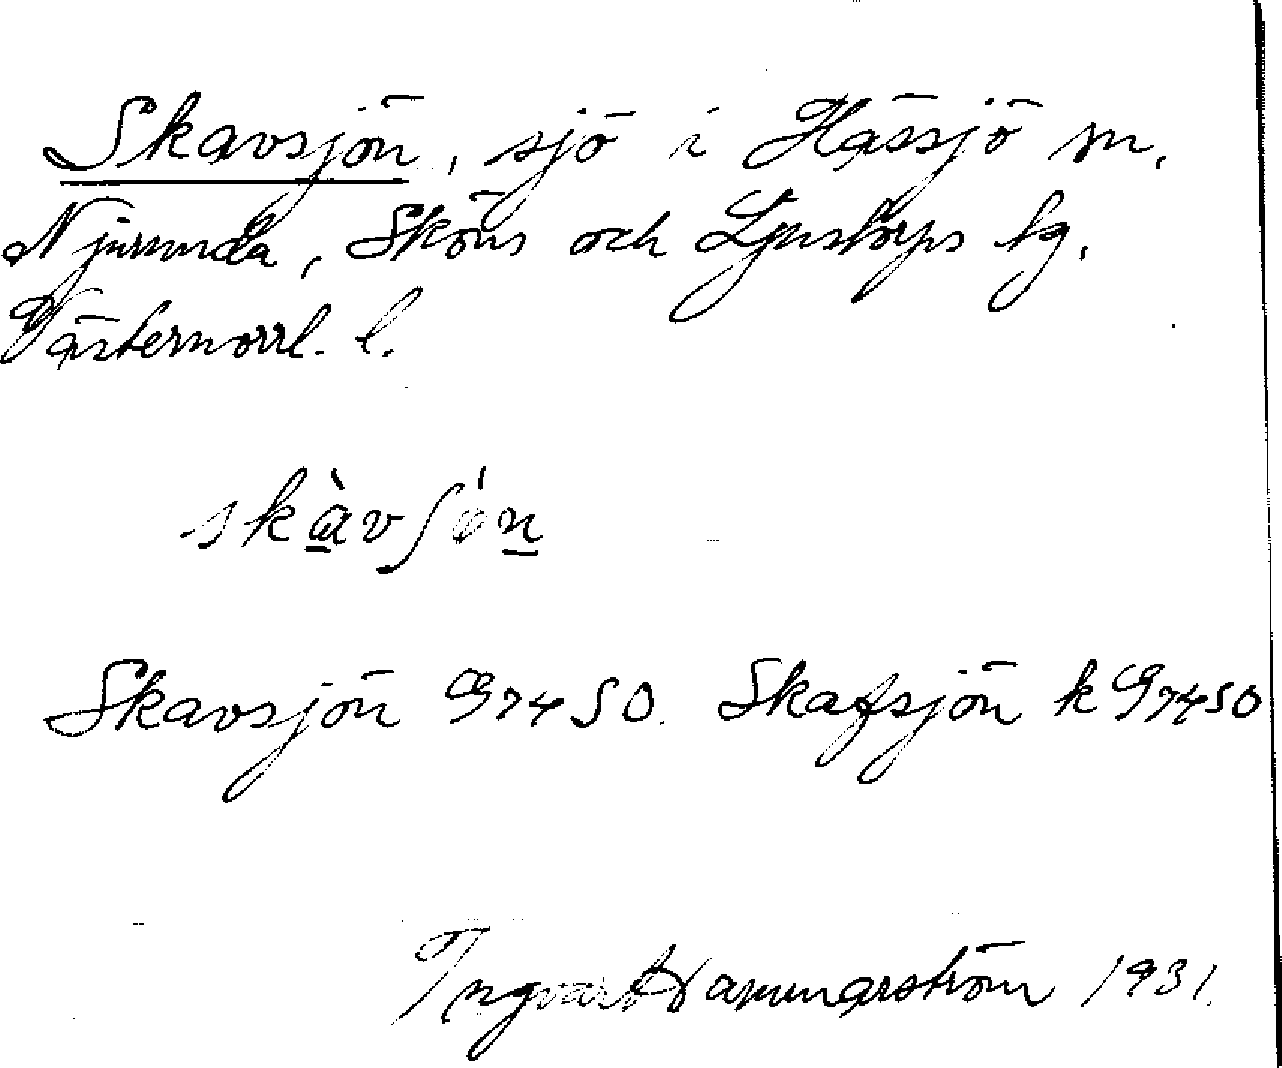 Skavsjön, sjö i Hässjö sn.
Njurunda, Sköns och Ljustorps tg.
Västernorrl. l.
skàvʃön
Skavsjön G74SO. Skafsjön k G74SO
Ingvar Hammarström 1931.